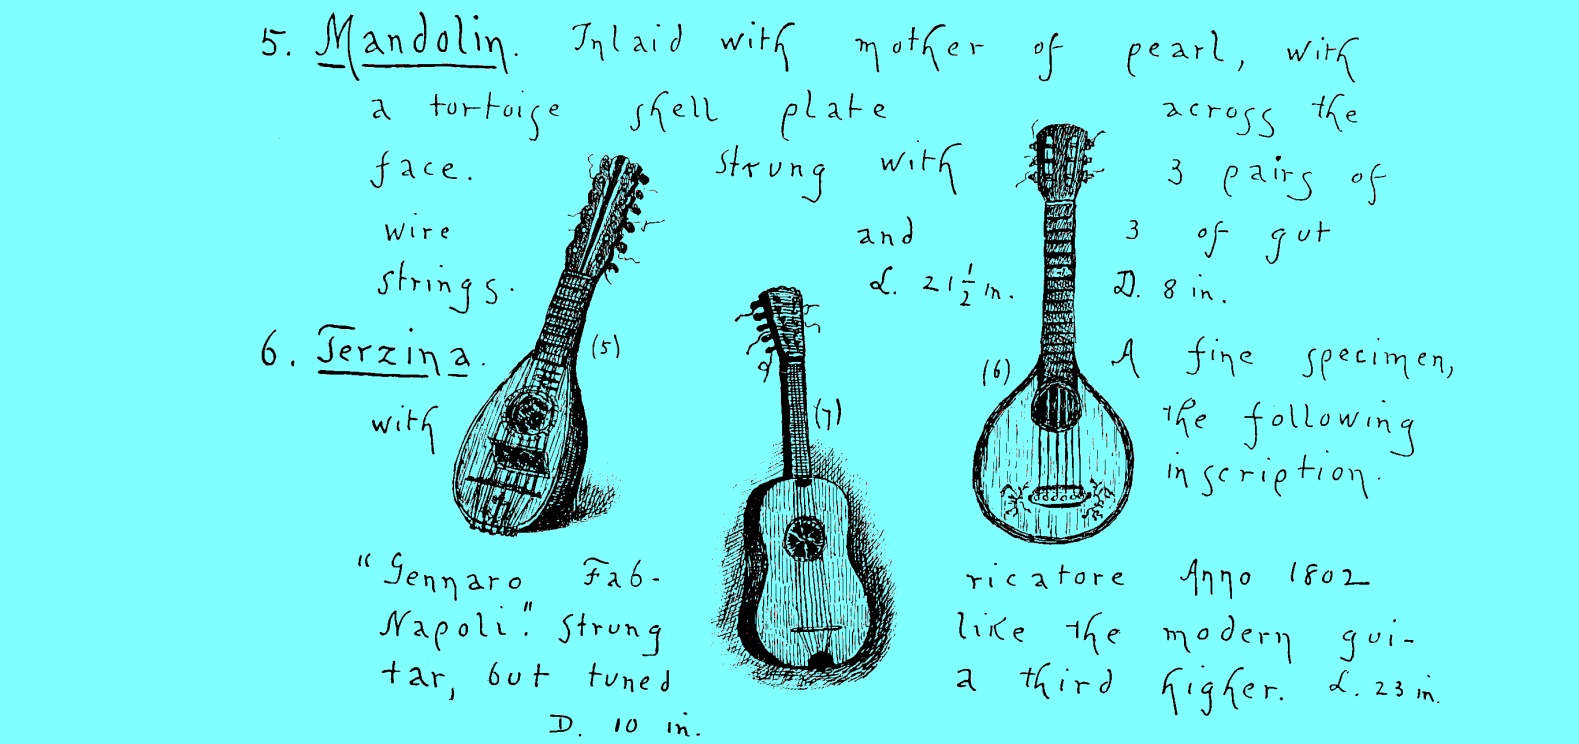 5. Mandolin. Inlaid with mother of pearl, with
a tortoise shell plate across the
face. Strung with 3 pairs of
wire and 3 of gut
strings. L. 21 1/2 in. D. 8 in.
(5)
6. Terzina. A fine specimen,
(6)
with (7) the following
inscription.
"Gennaro Fab-ricatore Anno 1802
Napoli." Strung like the modern gui-
tar, but tuned a third higher. L. 23 in.
D. 10 in.